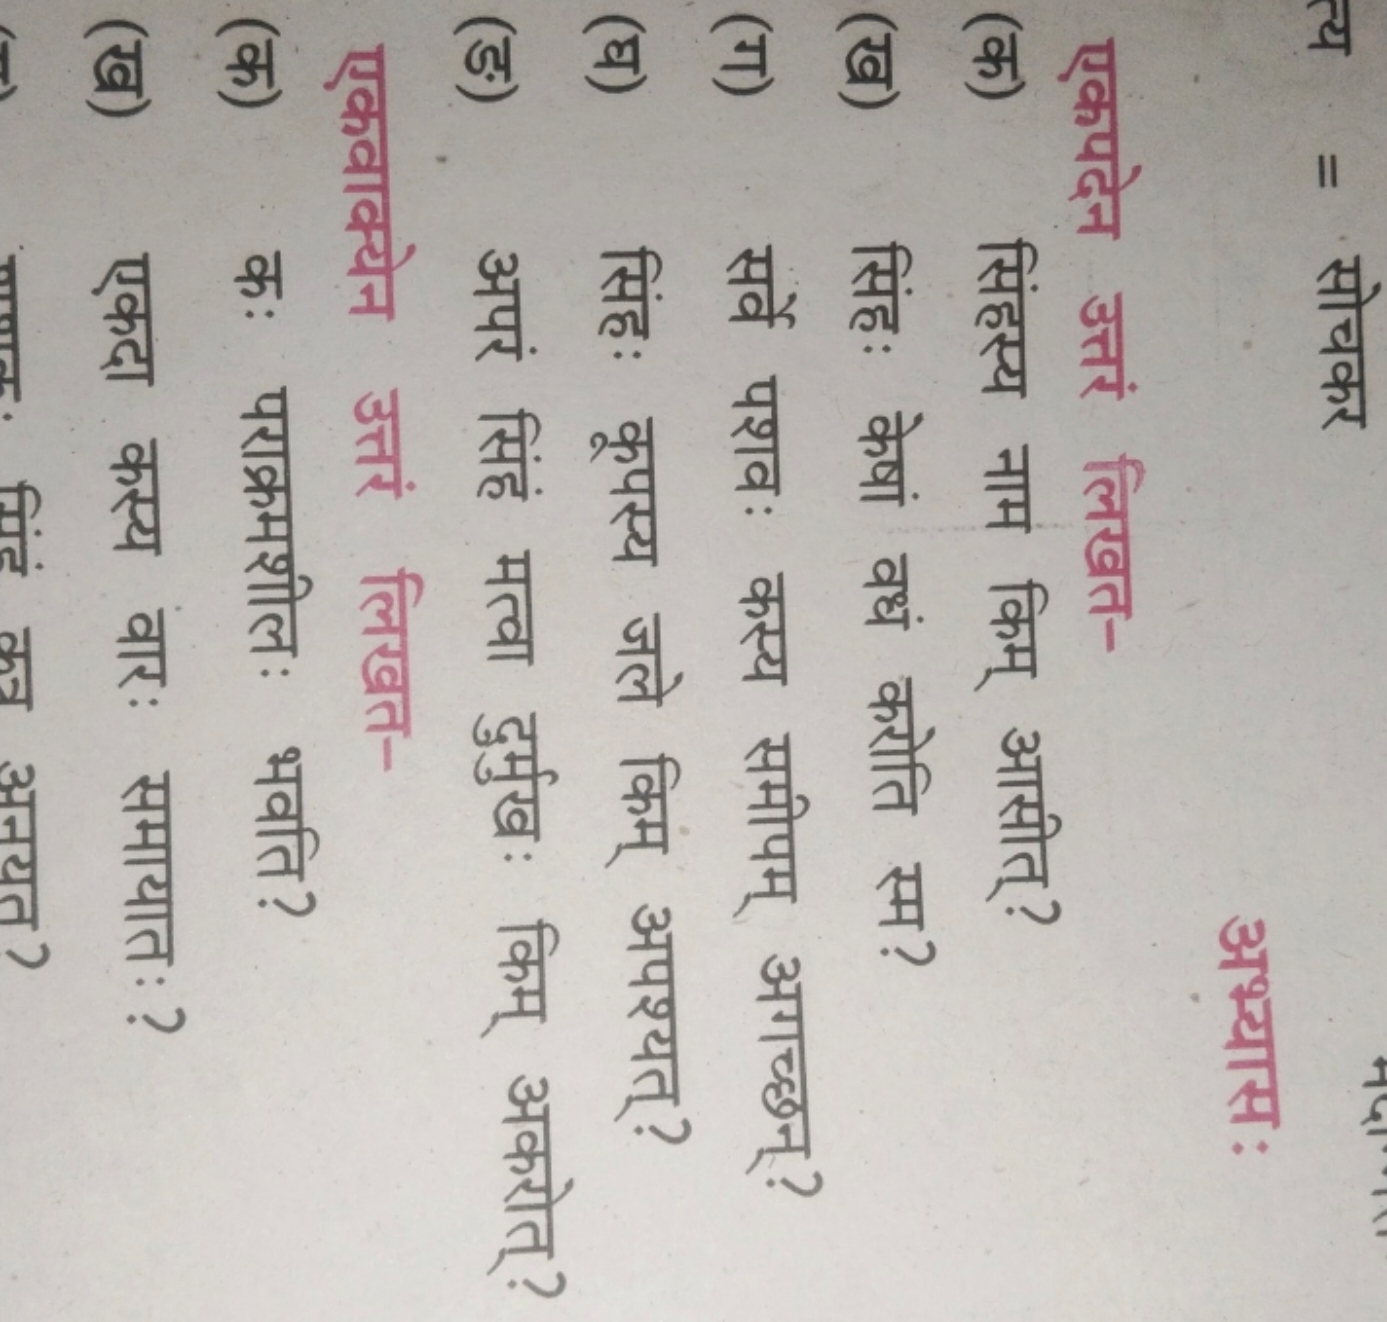 = सोचकर
अभ्यासः
एकपदेन उत्तरं लिखत–
(क) सिंहस्य नाम किम् आसीत्?
(ख) सिंहः केषां वधं करोति स्म?
(ग) सर्वे पशवः कस्य समीपम् आगच्छन्?
(घ) सिंहः कूपस्य जले किम् अपश्यत्?
(ङ) अपरं सिंहं मत्वा दुर्मुखः किम् अकरोत्?
एकवाक्येन उत्तरं लिखत–
(क) कः पराक्रमशीलः भवति?
(ख) एकदा कस्य वारः समायातः ?
सिंहं कुत्र अनयत?